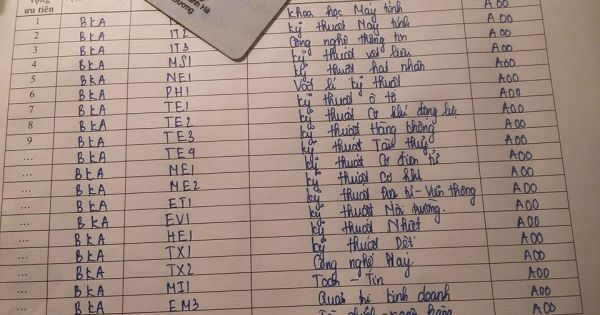 ưu tiên
anh Hà
Dương
1 BKA Khoa học Máy tính A00
2 BKA IT2 kỹ thuật Máy tính A00
3 BKA IT3 Công nghệ thông tin A00
4 BKA MS1 kỹ thuật vật liệu A00
5 BKA NE1 kỹ thuật hạt nhân A00
6 BKA PH1 Vật lí kỹ thuật A00
7 BKA TE1 kỹ thuật ô tô A00
8 BKA TE2 kỹ thuật Cơ khí động lực A00
9 BKA TE3 kỹ thuật Hàng không A00
... BKA TE4 kỹ thuật Tàu thuỷ A00
... BKA ME1 kỹ thuật Cơ điện tử A00
... BKA ME2 kỹ thuật Cơ khí A00
... BKA ET1 kỹ thuật - Viễn thông A00
... BKA EV1 kỹ thuật Môi trường A00
... BKA HE1 kỹ thuật Nhiệt A00
... BKA TX1 kỹ thuật Dệt A00
... BKA TX2 Công nghệ May A00
... BKA MI1 Toán - Tin A00
... BKA EM3 Quản trị kinh doanh A00